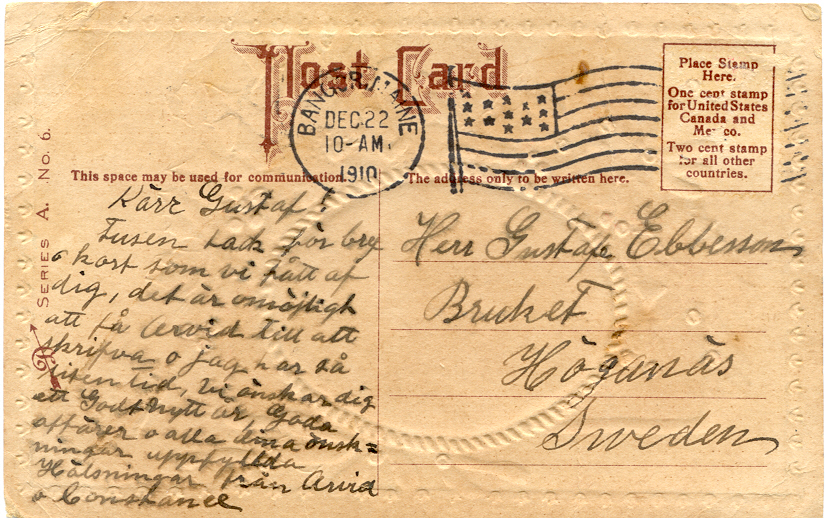 Post Card
BANGOR, MAINE
DEC 22
10-AM.
1910
Place Stamp
Here.
One cent stamp
for United States
Canada and
Mexico.
Two cent stamp
for all other
countries.
This space may be used for communication.
The address only to be written here.
SERIES A. No. 6.
Kärr Gustaf!
Tusen tack för bref
o kort som vi fått af
dig, det är omöjligt
att få Arvid till att
skrifva o jag har så
liten tid, vi önskar dig
ett Godt nytt år, goda
affärer o alla dina önsk=
ningar uppfyllda
Hälsningar från Arvid
o Constance
Herr Gustaf Ebbesson
Bruket
Höganäs
Sweden